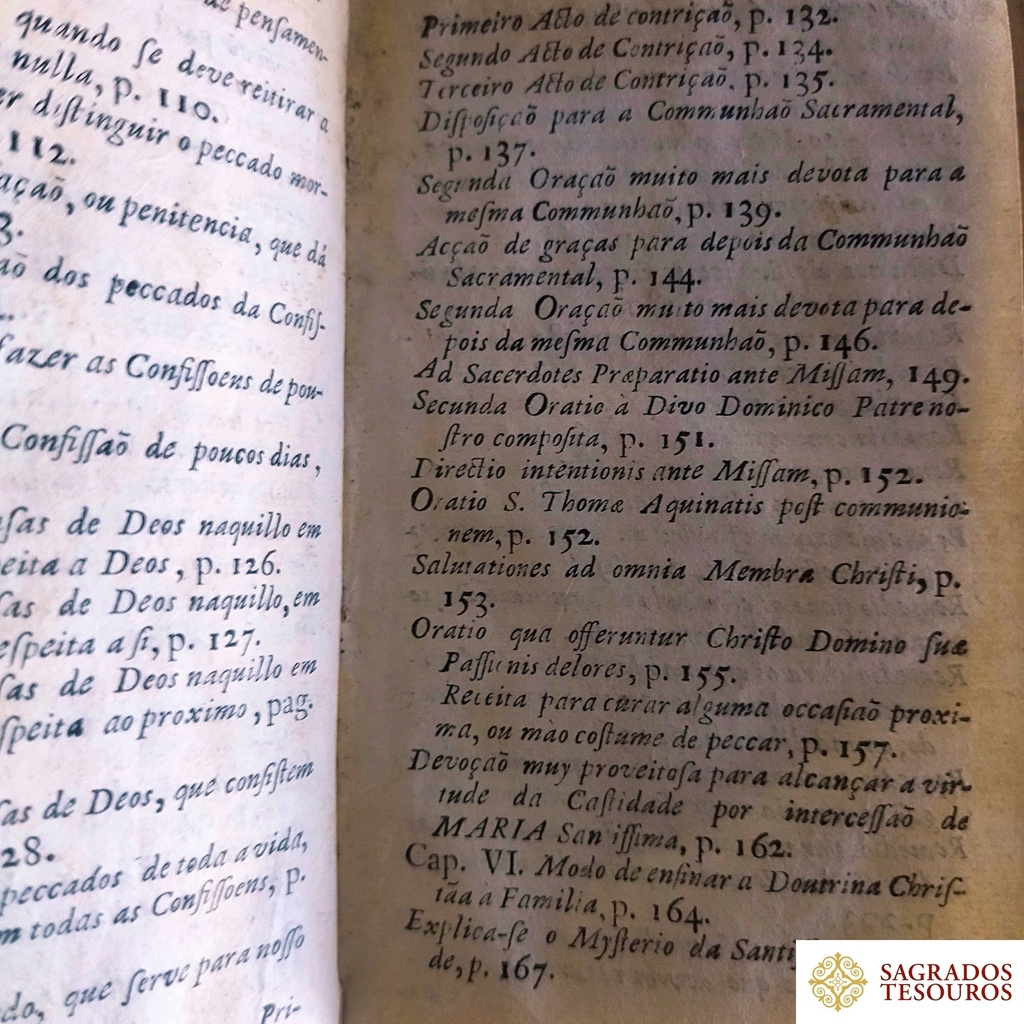 de pensamen-
quando ſe deve reitirar a
nulla, p. 110.
er diſtinguir o peccado mor-
112.
açaõ, ou penitencia, que dá
3.
aõ dos peccados da Confiſ-
fazer as Confiſſoens de pou-
Confiſſaõ de poucos dias,
ſas de Deos naquillo em
eita a Deos, p. 126.
ſas de Deos naquillo, em
eſpeita a ſi, p. 127.
ſas de Deos naquillo em
ſpeita ao proximo, pag.
ſas de Deos, que conſiſtem
28.
peccados de toda a vida,
m todas as Confiſſoens, p.
do, que ſerve para noſſo
Pri-
Primeiro Acto de contriçaõ, p. 132.
Segundo Acto de Contriçaõ, p. 134.
Terceiro Acto de Contriçaõ. p. 135.
Diſpoſiçaõ para a Communhaõ Sacramental,
p. 137.
Segunda Oraçaõ muito mais devota para a
meſma Communhaõ, p. 139.
Acçaõ de graças para depois da Communhaõ
Sacramental, p. 144.
Segunda Oraçaõ muito mais devota para de-
pois da meſma Communhaõ, p. 146.
Ad Sacerdotes Præparatio ante Miſſam, 149.
Secunda Oratio à Divo Dominico Patre no-
ſtro compoſita, p. 151.
Directio intentionis ante Miſſam, p. 152.
Oratio S. Thomæ Aquinatis poſt communio-
nem, p. 152.
Salutationes ad omnia Membra Chriſti, p.
153.
Oratio qua offeruntur Chriſto Domino ſuæ
Paſſionis dolores, p. 155.
Receita para curar alguma occaſiaõ proxi-
ma, ou mào coſtume de peccar, p. 157.
Devoçaõ muy proveitoſa para alcançar a vir-
tude da Caſtidade por interceſſaõ de
MARIA Santiſſima, p. 162.
Cap. VI. Modo de enſinar a Doutrina Chriſ-
tãa a Familia, p. 164.
Explica-ſe o Myſterio da Santiſ
de, p. 167.
SAGRADOS
TESOUROS